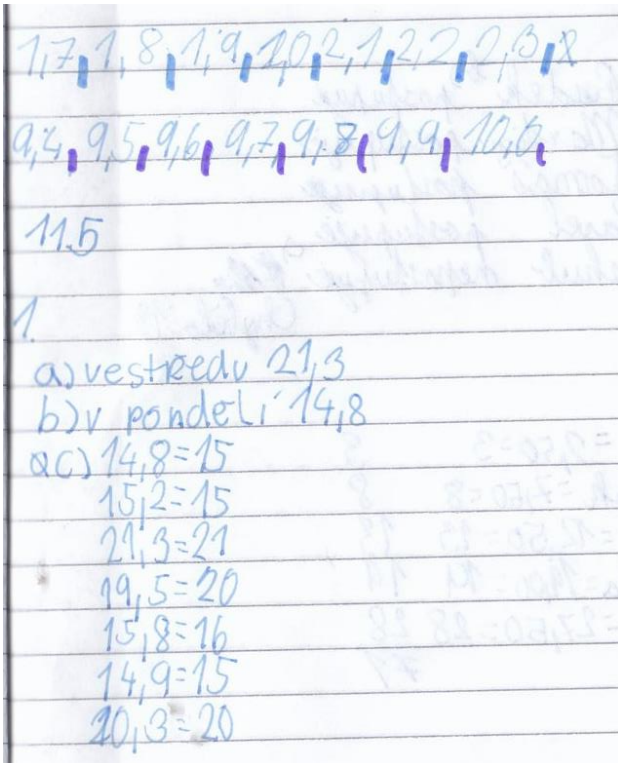 1,7 1,8 1,9 2,0 2,1 2,2 2,3
9,4 9,5 9,6 9,7 9,8 9,9 10,0
11.5
1.
a) ve středu 21,3
b) v pondělí 14,8
c) 14,8=15
15,2=15
21,3=21
19,5=20
15,8=16
14,9=15
20,3=20